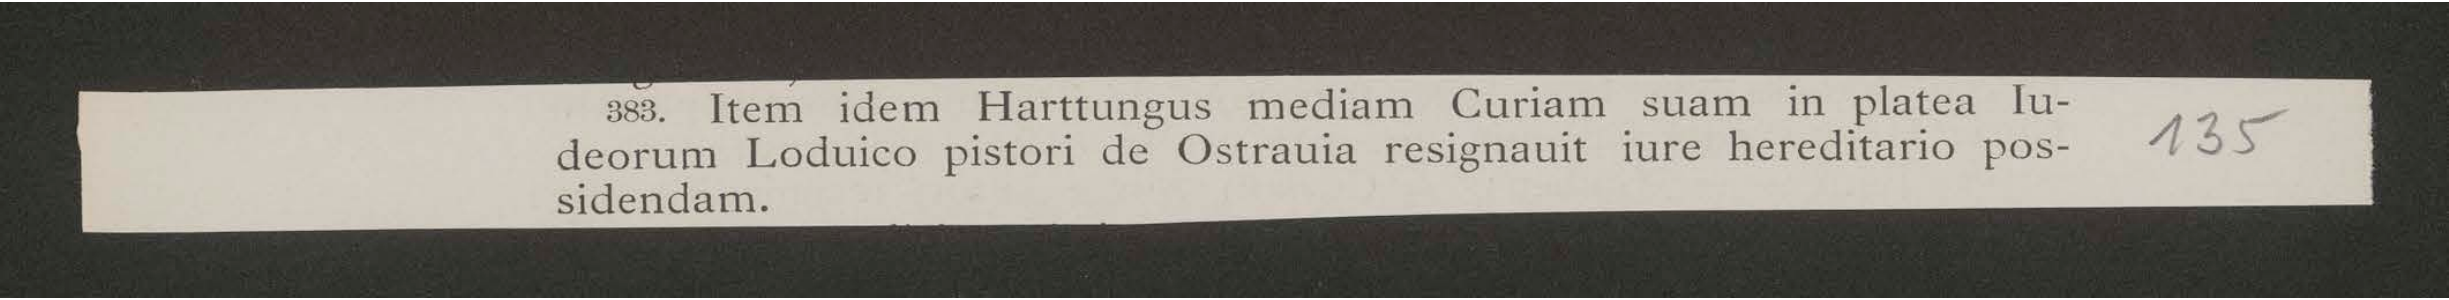 383. Item idem Harttungus mediam Curiam suam in platea Iu-
deorum Loduico pistori de Ostrauia resignauit iure hereditario pos-
sidendam.
135